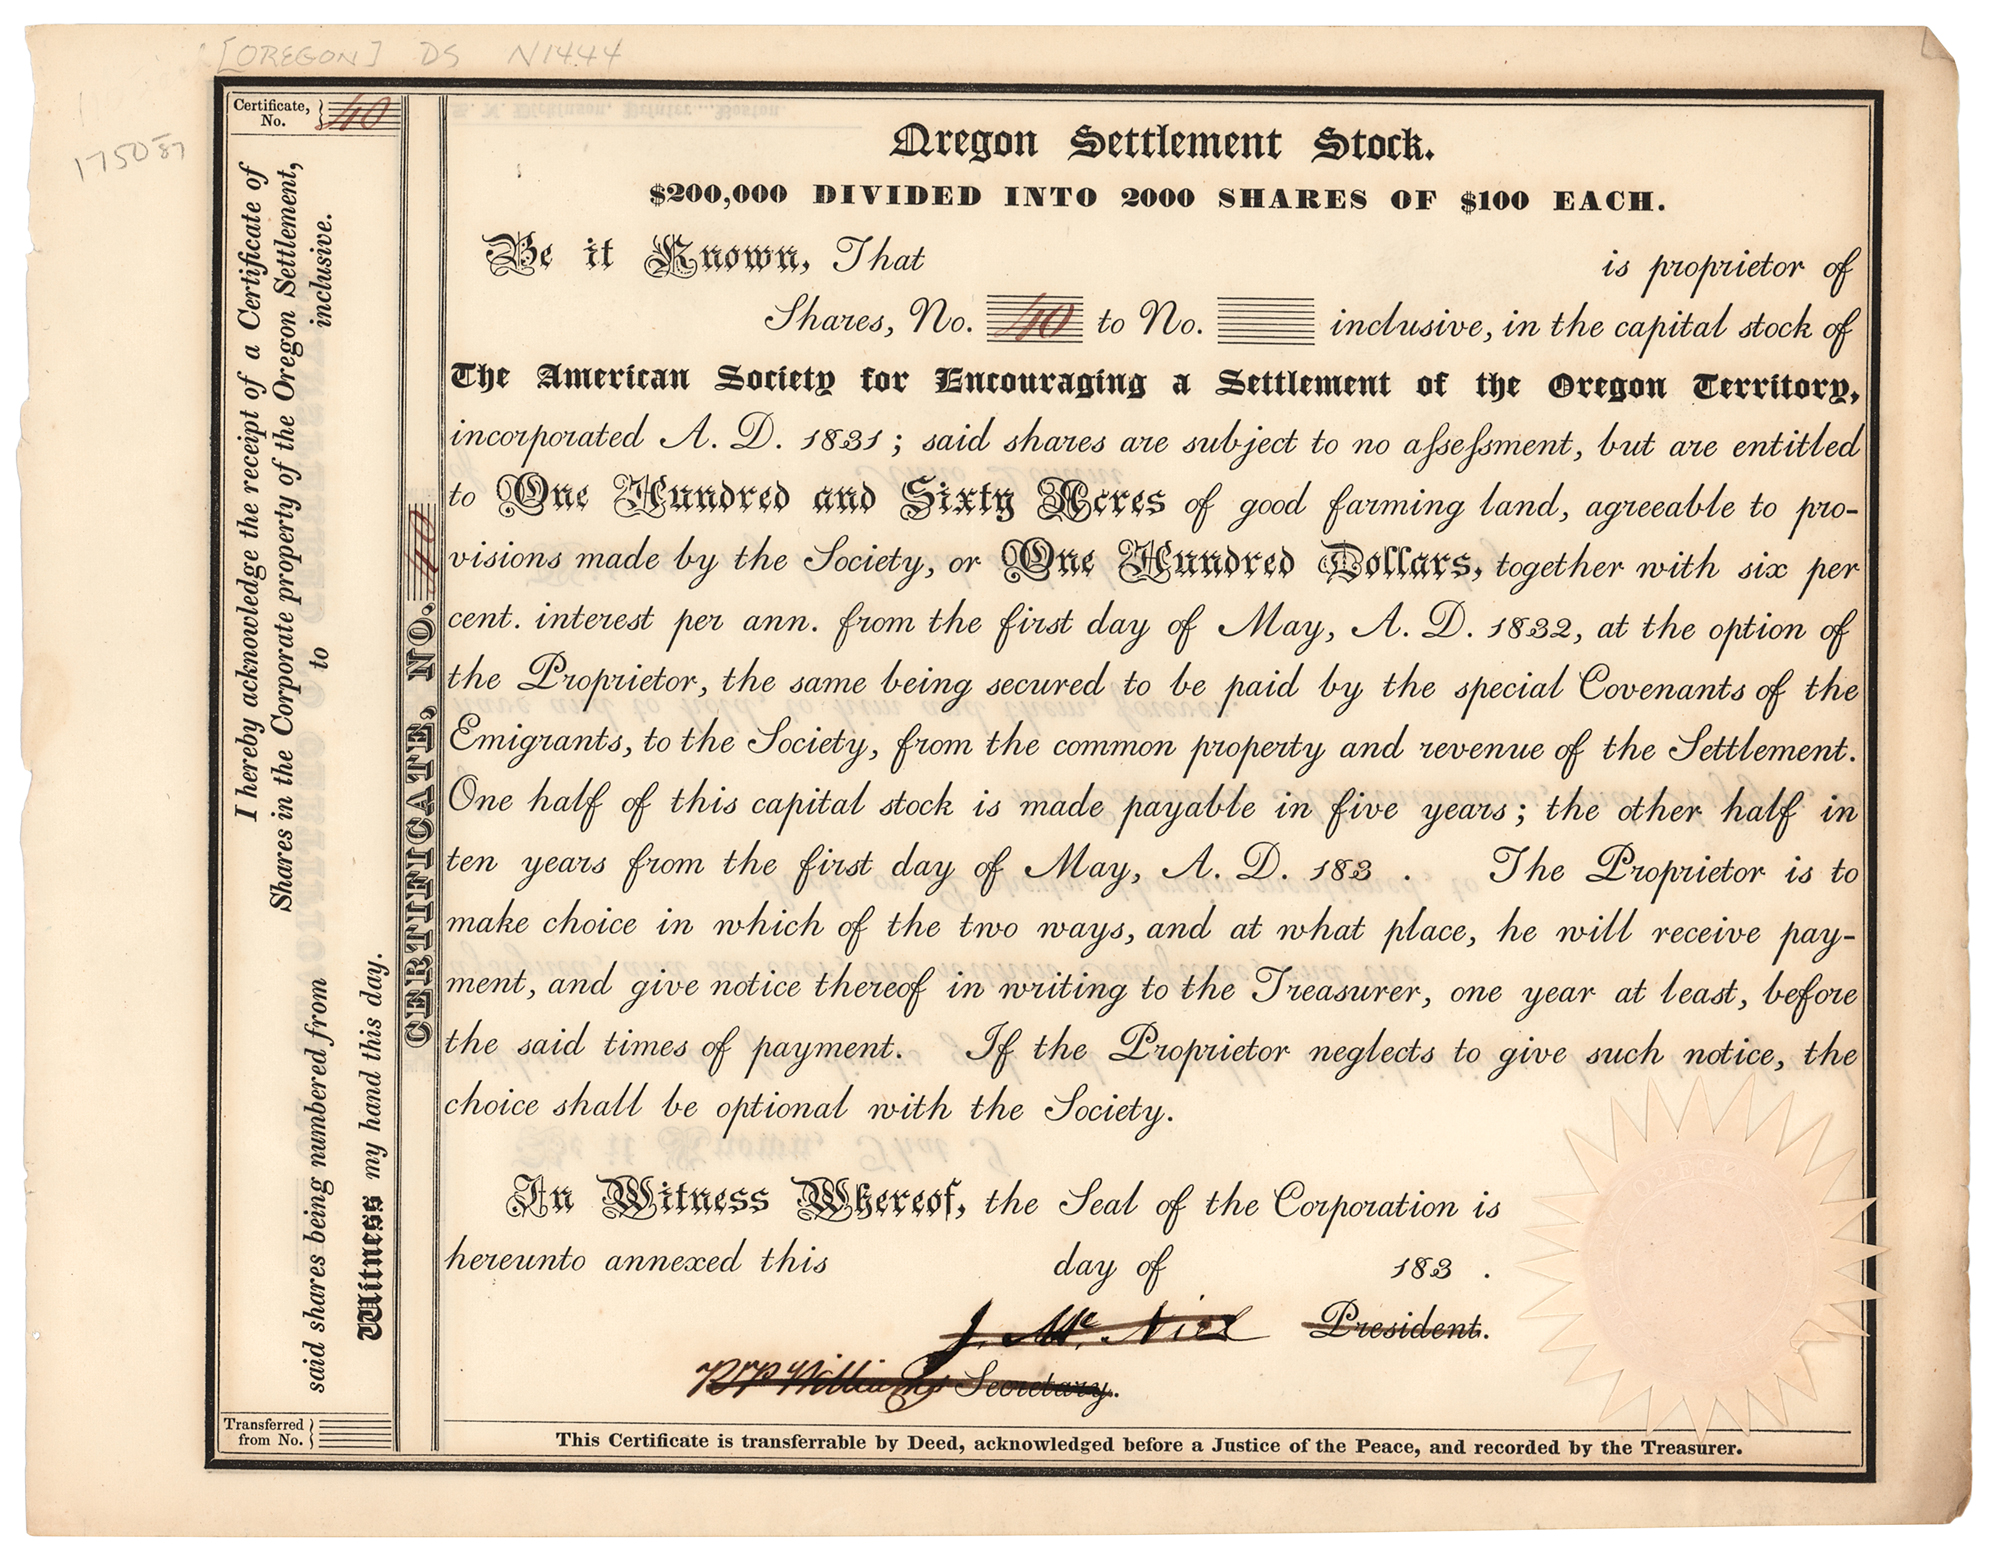 [OREGON] DS N1444
175087
Certificate,
No. 40
I hereby acknowledge the receipt of a Certificate of
Shares in the Corporate property of the Oregon Settlement,
said shares being numbered from to inclusive.
Witness my hand this day.
Transferred
from No.
CERTIFICATE, NO. 40
S. N. Dickinson, Printer....Boston.
Oregon Settlement Stock.
$200,000 DIVIDED INTO 2000 SHARES OF $100 EACH.
Be it Known, That is proprietor of
Shares, No. 40 to No. inclusive, in the capital stock of
The American Society for Encouraging a Settlement of the Oregon Territory,
incorporated A. D. 1831; said shares are subject to no assessment, but are entitled
to One Hundred and Sixty Acres of good farming land, agreeable to pro-
visions made by the Society, or One Hundred Dollars, together with six per
cent. interest per ann. from the first day of May, A. D. 1832, at the option of
the Proprietor, the same being secured to be paid by the special Covenants of the
Emigrants, to the Society, from the common property and revenue of the Settlement.
One half of this capital stock is made payable in five years; the other half in
ten years from the first day of May, A. D. 183 . The Proprietor is to
make choice in which of the two ways, and at what place, he will receive pay-
ment, and give notice thereof in writing to the Treasurer, one year at least, before
the said times of payment. If the Proprietor neglects to give such notice, the
choice shall be optional with the Society.
In Witness Whereof, the Seal of the Corporation is
hereunto annexed this day of 183 .
J. Mc. Niel President.
Williams Secretary.
This Certificate is transferrable by Deed, acknowledged before a Justice of the Peace, and recorded by the Treasurer.